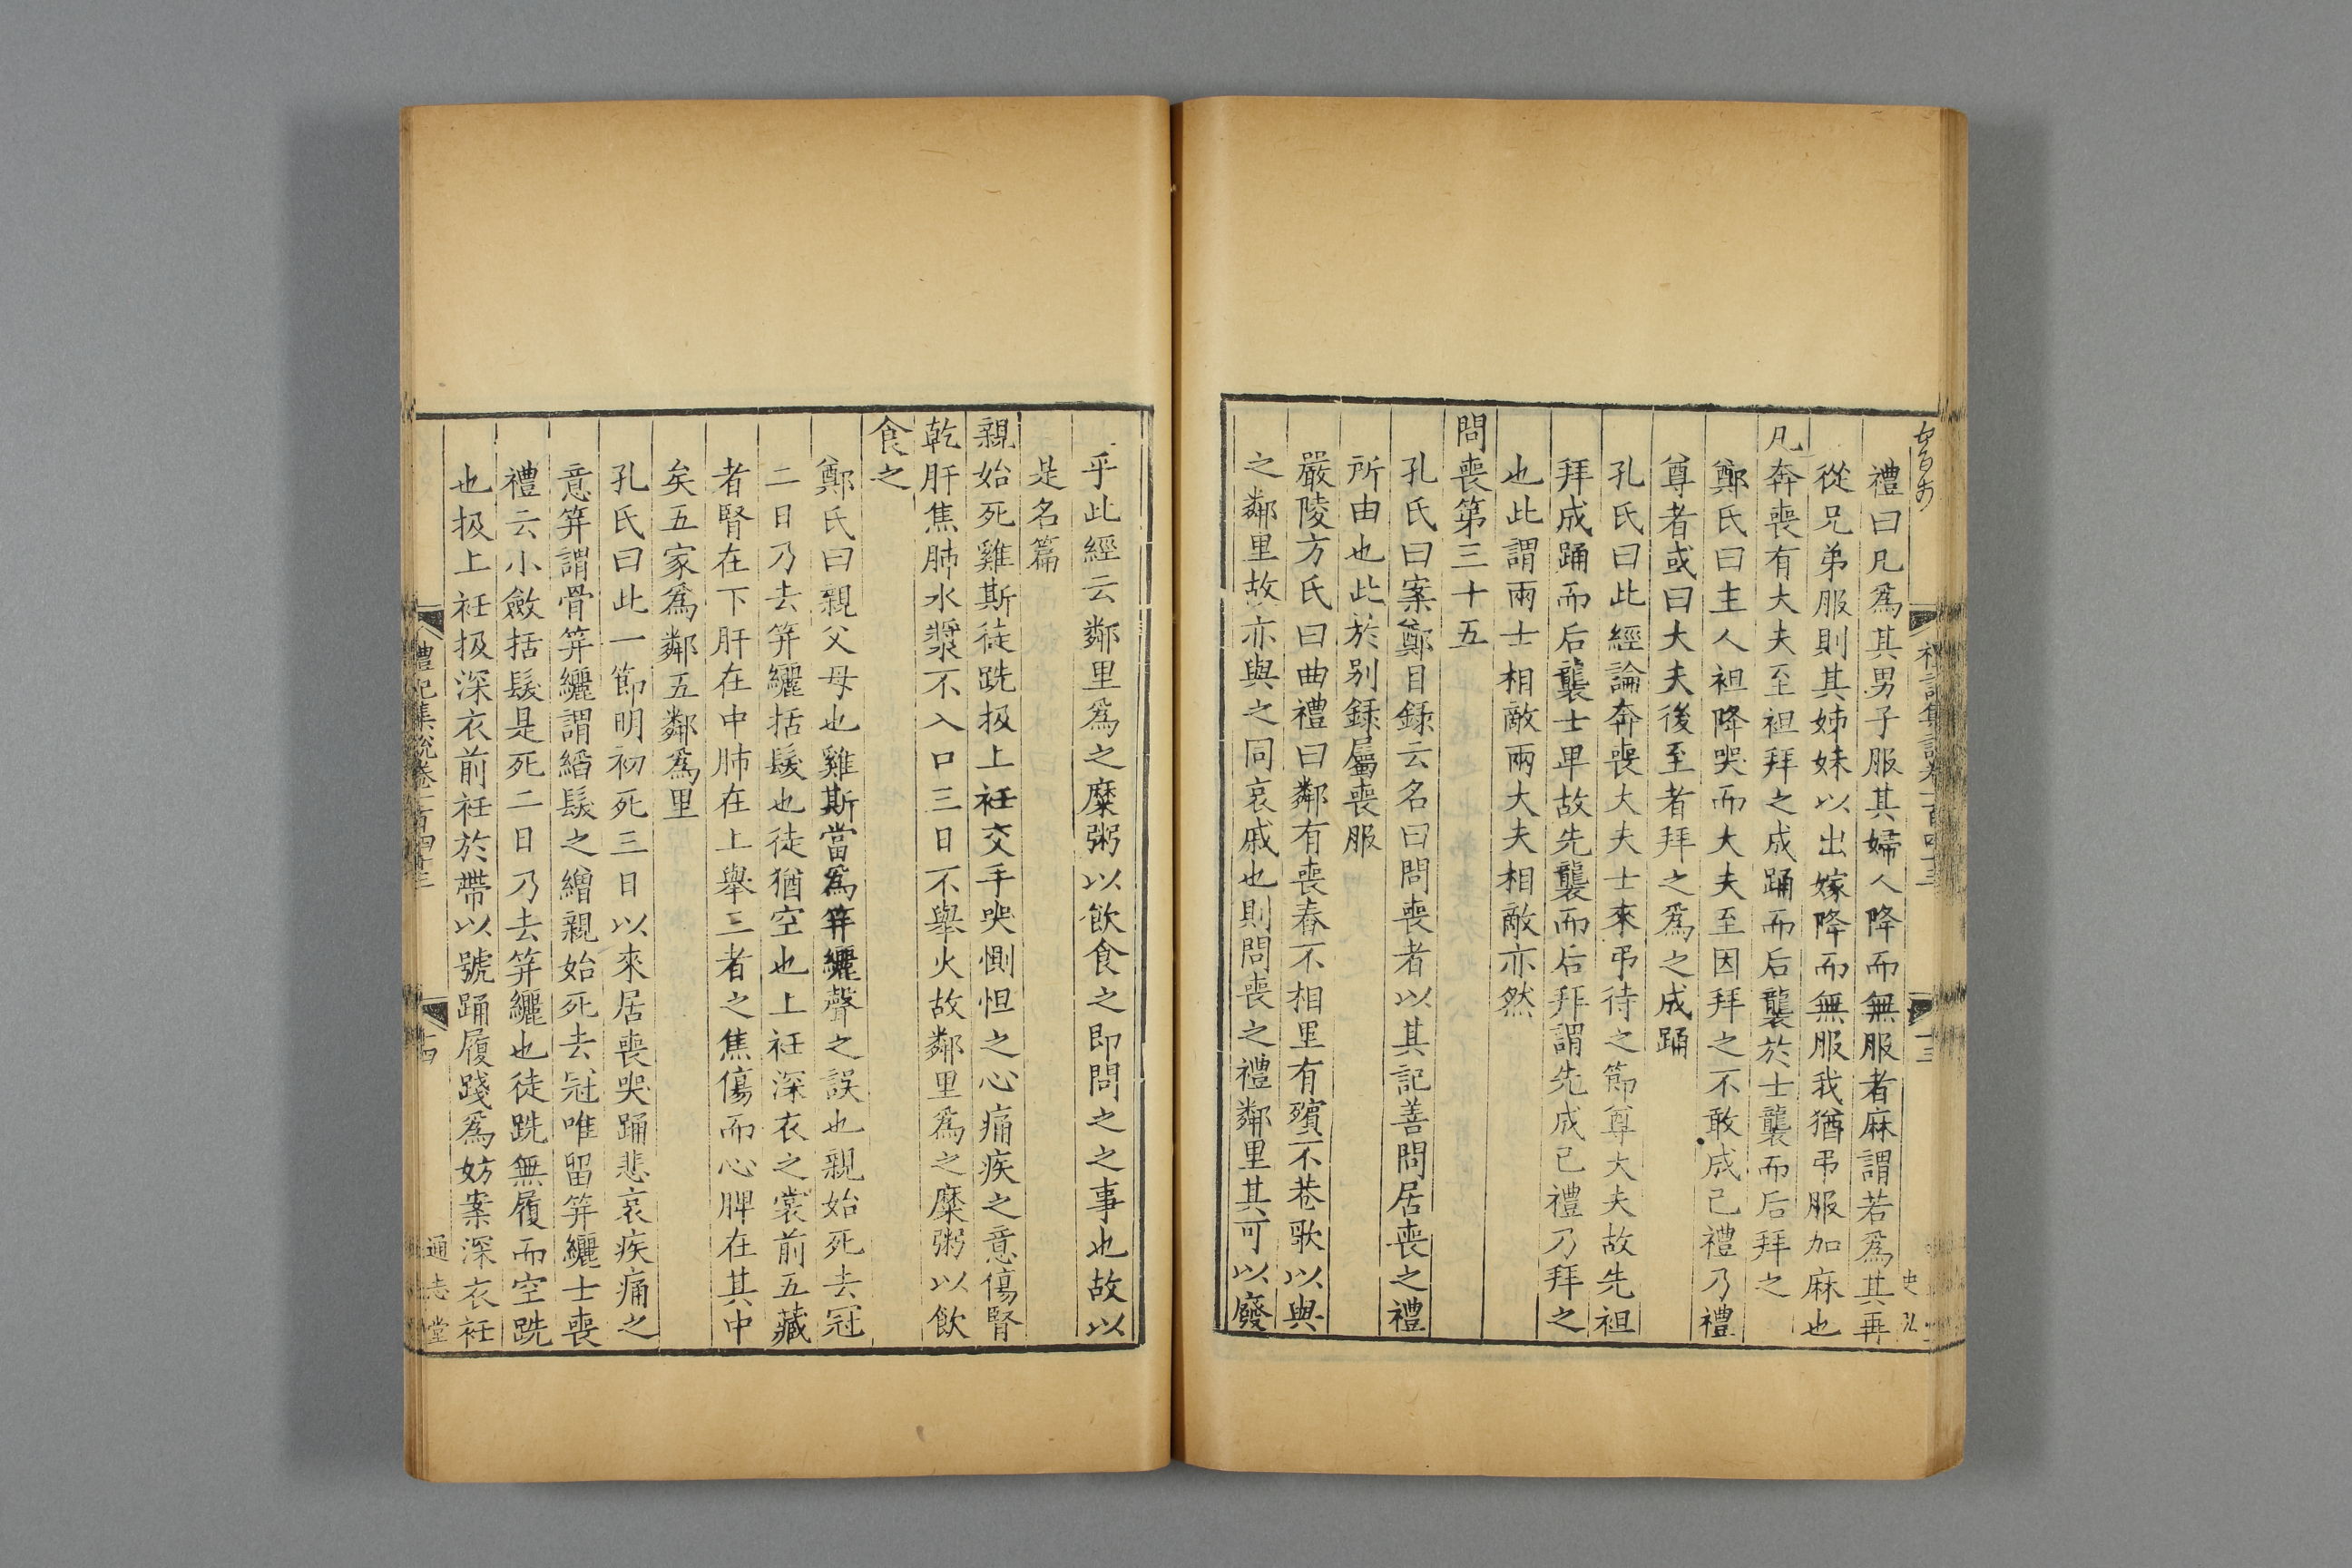 禮曰凡爲其男子服其婦人降而無服者麻謂若爲其再
從兄弟服則其姊妹以出嫁降而無服我猶弔服加麻也
凡奔喪有大夫至袒拜之成踊而后襲於士襲而后拜之
鄭氏曰主人袒降哭而大夫至因拜之不敢成已禮乃禮
尊者或曰大夫後至者拜之爲之成踊
孔氏曰此經論奔喪大夫士來弔待之節尊大夫故先袒
拜成踊而后襲士卑故先襲而后拜謂先成已禮乃拜之
也此謂兩士相敵兩大夫相敵亦然
問喪第三十五
孔氏曰案鄭目録云名曰問喪者以其記善問居喪之禮
所由也此於别録屬喪服
嚴陵方氏曰曲禮曰鄰有喪舂不相里有殯不巷歌以與
之鄰里故亦與之同哀戚也則問喪之禮鄰里其可以廢
乎此經云鄰里爲之糜粥以飲食之即問之之事也故以
是名篇
親始死雞斯徒跣扱上衽交手哭惻怛之心痛疾之意傷腎
乾肝焦肺水漿不入口三日不舉火故鄰里爲之糜粥以飲
食之
鄭氏曰親父母也雞斯當爲筓纚聲之誤也親始死去冠
二日乃去筓纚括髮也徒猶空也上衽深衣之裳前五藏
者腎在下肝在中肺在上舉三者之焦傷而心脾在其中
矣五家爲鄰五鄰爲里
孔氏曰此一節明初死三日以來居喪哭踊悲哀疾痛之
意筓謂骨筓纚謂縚髮之繒親始死去冠唯留筓纚士喪
禮云小斂括髮是死二日乃去筓纚也徒跣無履而空跣
也扱上衽扱深衣前衽於帶以號踊履踐爲妨案深衣衽
禮記集說卷一百四十三
十四
通志堂